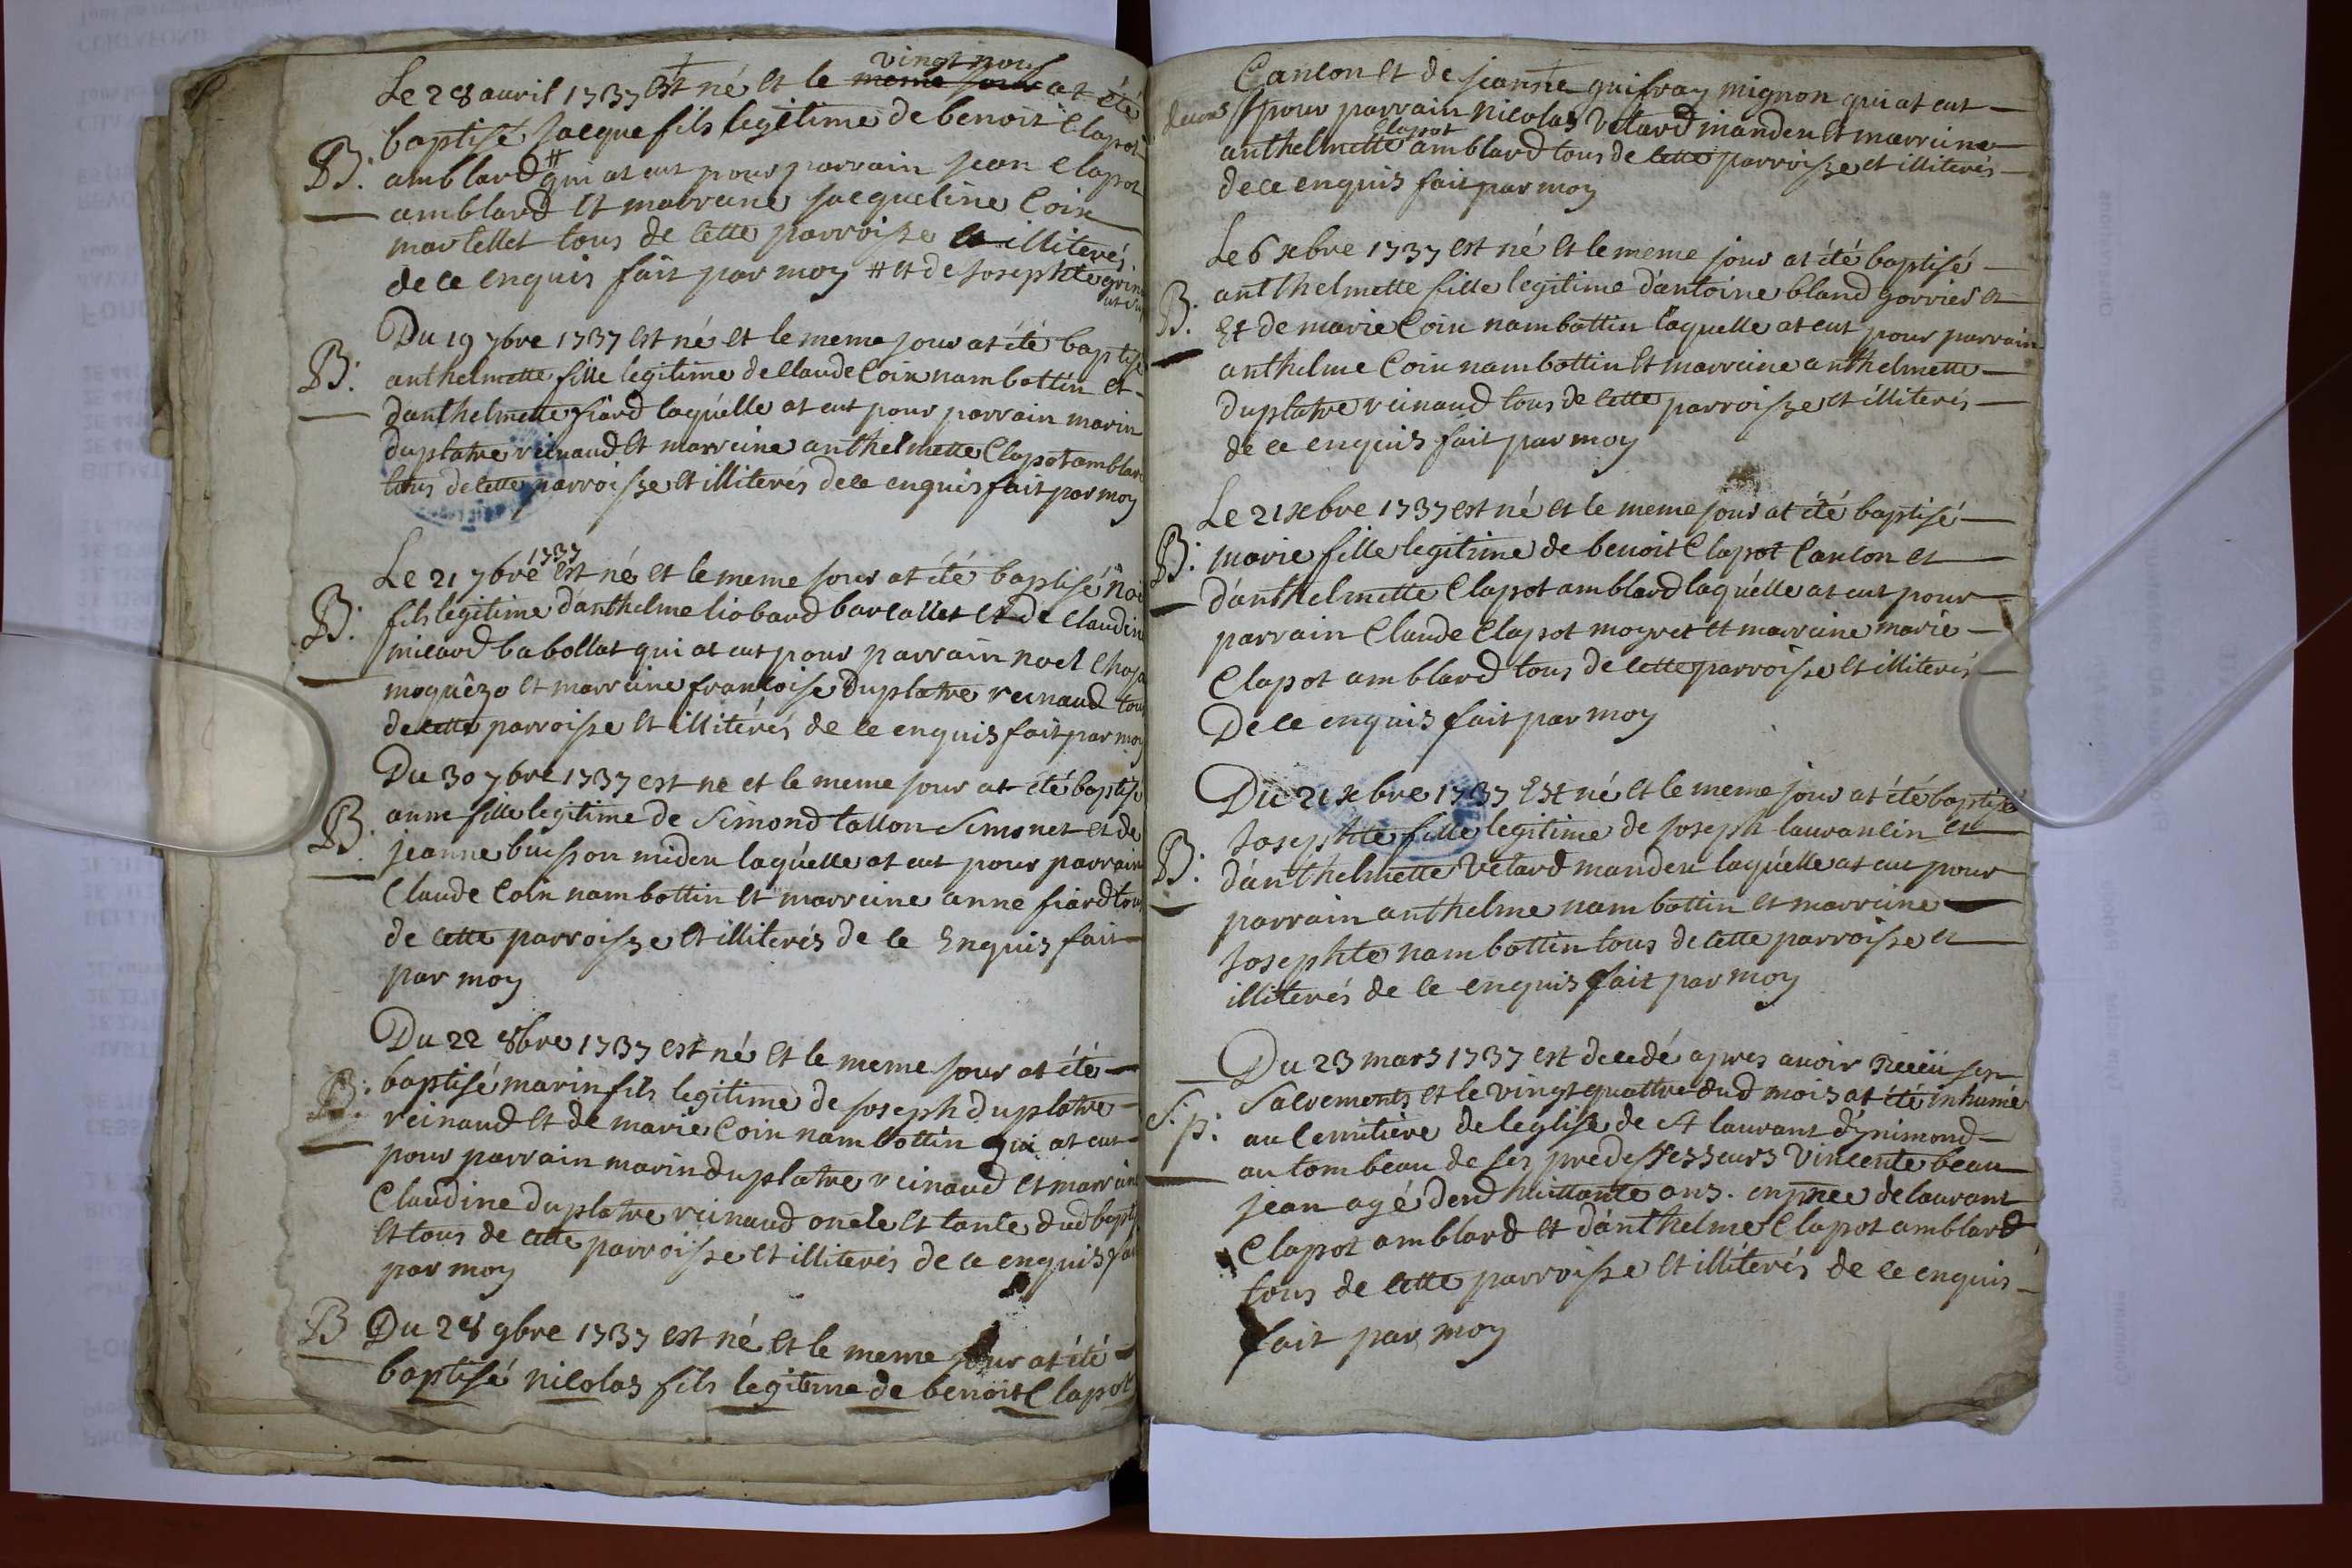 vingt nouf
Le 28 auril 1737 est né et le meme jour at été
baptisé jacque fils legitime de benoit Clapot
B. amblard # qui at eut pour parrain jean Clapot
amblard et marreine jacqueline Coin
martellet tous de cette parroisse et illiterés
de ce enquis fait par moy # et de josephte
Du 19 7bre 1737 est né et le meme jour at été baptisé
B. anthelmette fille legitime de Claude Coin nambottin et
danthelmette fiard laquelle at eut pour parrain marin
duplatre reinaud et marreine anthelmette Clapot amblard
tous de cette parroisse et illiterés de ce enquis fait par moy
1737
Le 21 7bre est né et le meme jour at été baptisé
B. fils legitime d'anthelme liobard barcallet et de Claudine
micard babollat qui at eut pour parrain noel
moquêzo et marreine francoise duplatre reinaud tous
de cette parroisse et illitérés de ce enquis fait par moy
Du 30 7bre 1737 est né et le meme jour at été baptisé
B. anne fille legitime de Simond tallon Simonet et de
jeanne buisson miden laquelle at eut pour parrain
Claude Coin nambottin et marreine anne fiard tous
de cette parroisse et illiterés de ce Enquis fait
par moy
Du 22 8bre 1737 est né et le meme jour at été
B. baptisé marin fils legitime de joseph duplatre
reinaud et de marie Coin nambottin qui at eut
pour parrain marin duplatre reinaud et marreine
Claudine duplatre reinaud oncle et tante dud bapt
et tous de cette parroisse et illiterés de ce enquis fait
par moy
B Du 28 9bre 1737 est né et le meme jour at été
baptisé nicolas fils legitime de benoit Clapot
Cancon et de jeanne guifray mignon qui at eut
pour parrain nicolas Vetard manden et marreine
Clapot
anthelmette amblard tous de cette parroisse et illiterés
de ce enquis fait par moy
Le 6 xbre 1737 est né et le meme jour at été baptisé
B. anthelmette fille legitime d'antoine bland gorrier et
Et de marie Coin nambottin laquelle at eut pour parrain
anthelme Coin nambottin et marreine anthelmette
duplatre reinaud tous de cette parroisse et illiterés
de ce enquis fait par moy
Le 21 xbre 1737 est né et le meme jour at été baptisé
B. marie fille legitime de benoit Clapot Cancon et
d'anthelmette Clapot amblard laquelle at eut pour
parrain Claude Clapot moyret et marreine marie
Clapot amblard tous de cette parroisse et illiterés
De ce enquis fait par moy
Du 21 xbre 1737 Est né et le meme jour at été baptisé
josephte fille legitime de joseph lauvanlin et
B. d'anthelmette Vetard manden laquelle at eut pour
parrain anthelme nambottin et marreine
josephte nambottin tous de cette parroisse et
illiterés de ce enquis fait par moy
Du 23 mars 1737 est decedé apres auoir receü ses
Sacrements et le vingt quattre dud mois at été inhumé
S. p. au Cemitiere de leglise de St laurant d'ynimond
au tombeau de ses predessesseurs Vincente beau
jean agé dend huittante ans. en pnce de laurant
Clapot amblard et d'anthelme Clapot amblard
tous de cette parroisse et illitérés de ce enquis
fait par moy